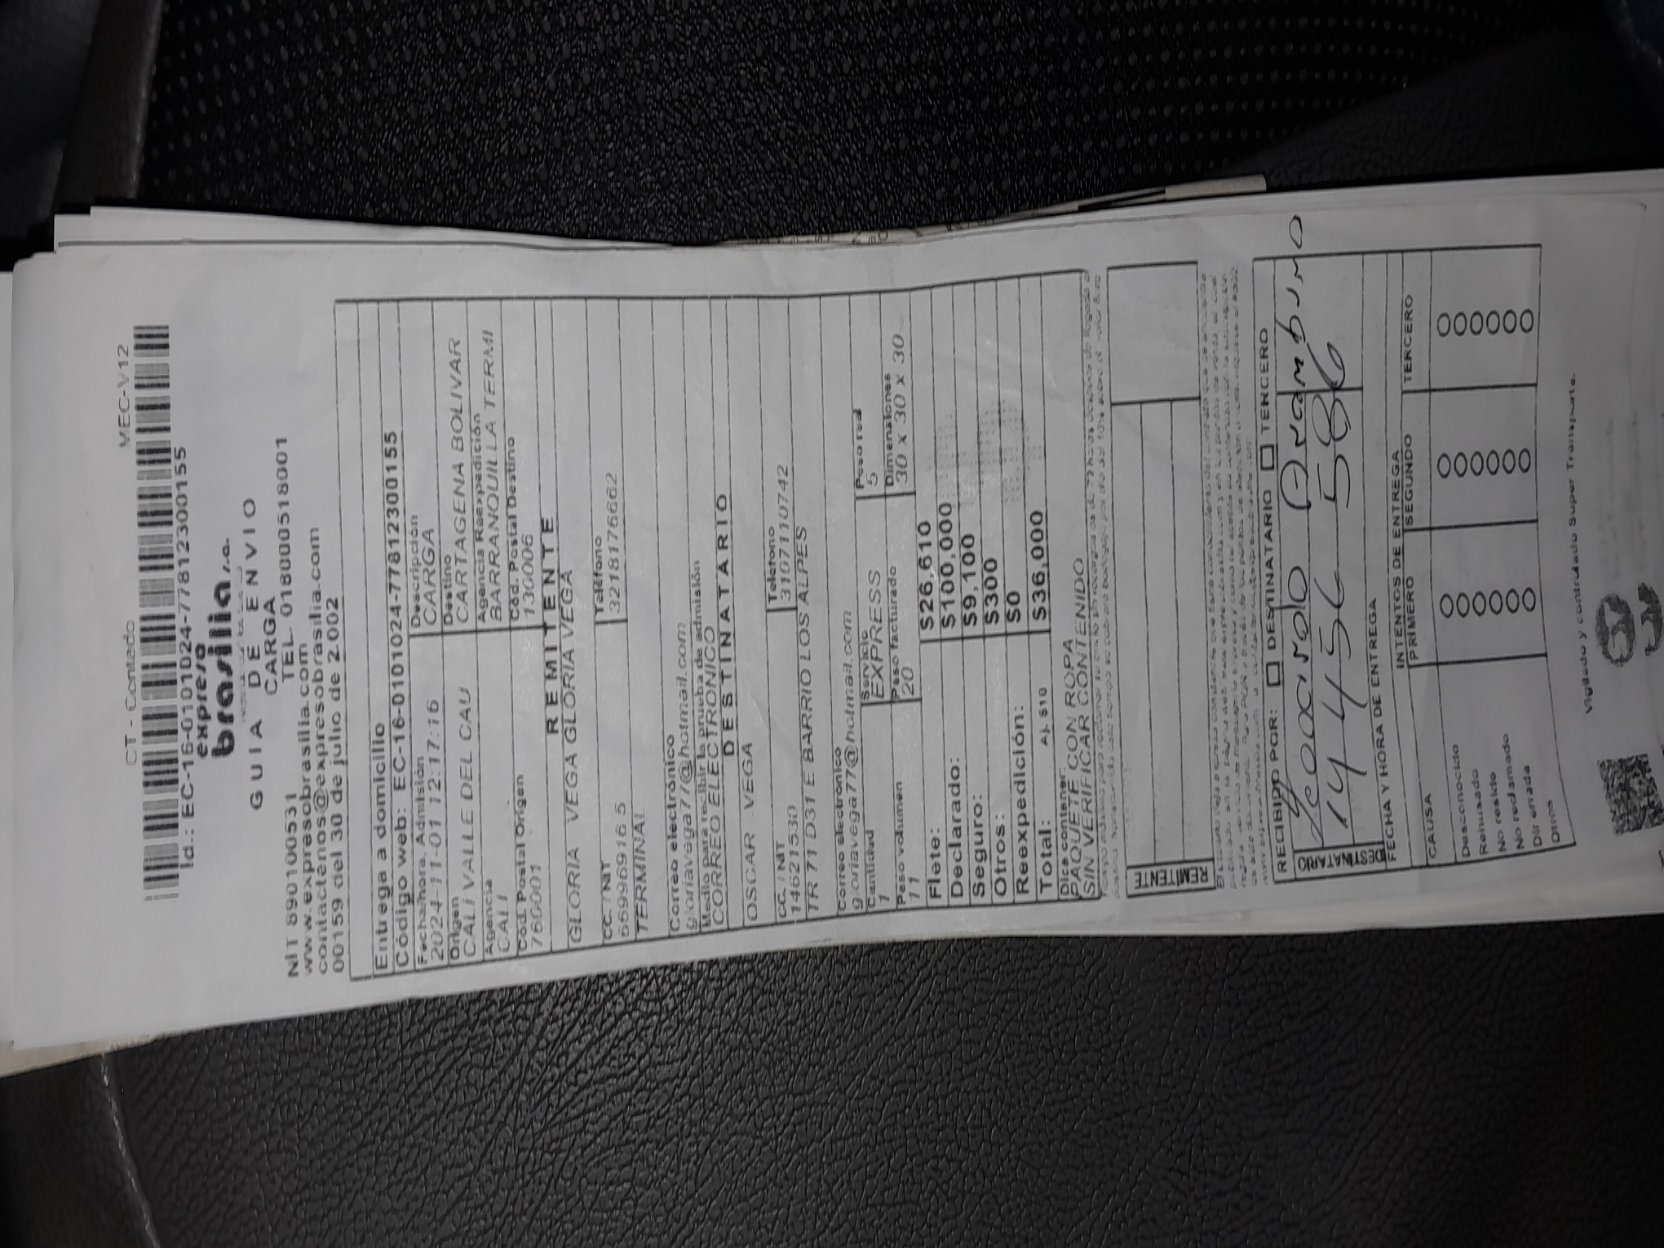 CT - Contado MEC-V12
Id.: EC-16-0101024-77812300155
expreso
brasilia s.a.
GUIA DE ENVIO
CARGA
NIT 890100531 TEL. 018000518001
www.expresobrasilia.com
contactenos@expresobrasilia.com
00159 del 30 de julio de 2.002
Entrega a domicilio
Código web: EC-16-0101024-77812300155
Fecha/hora. Admisión Descripción
2024-11-01 12:17:16 CARGA
Origen Destino
CALI VALLE DEL CAU CARTAGENA BOLIVAR
Agencia Agencia Reexpedición
CALI BARRANQUILLA TERMI
Cód. Postal Origen Cód. Postal Destino
760001 130006
REMITENTE
GLORIA VEGA GLORIA VEGA
CC. / NIT Teléfono
66996916 5 3218176662
TERMINAL
Correo electrónico
gloriavega77@hotmail.com
Medio para recibir la prueba de admisión
CORREO ELECTRONICO
DESTINATARIO
OSCAR VEGA
CC. / NIT Telefono
14621530 3107110742
TR 71 D31 E BARRIO LOS ALPES
Correo electrónico
gloriavega77@hotmail.com
Cantidad Servicio Peso real
1 EXPRESS 5
Peso volumen Peso facturado Dimensiones
11 20 30 x 30 x 30
Flete: $26,610
Declarado: $100,000
Seguro: $9,100
Otros: $300
Reexpedición: $0
Total: Aj. $10 $36,000
Dice contener:
PAQUETE CON ROPA
SIN VERIFICAR CONTENIDO
REMITENTE
RECIBIDO POR: DESTINATARIO TERCERO
DESTINATARIO
14456 586
FECHA Y HORA DE ENTREGA
INTENTOS DE ENTREGA
PRIMERO SEGUNDO TERCERO
CAUSA
Desconocido
Rehusado
No reside
No reclamado
Dir errada
Otros
Vigilado y controlado Super Transporte.